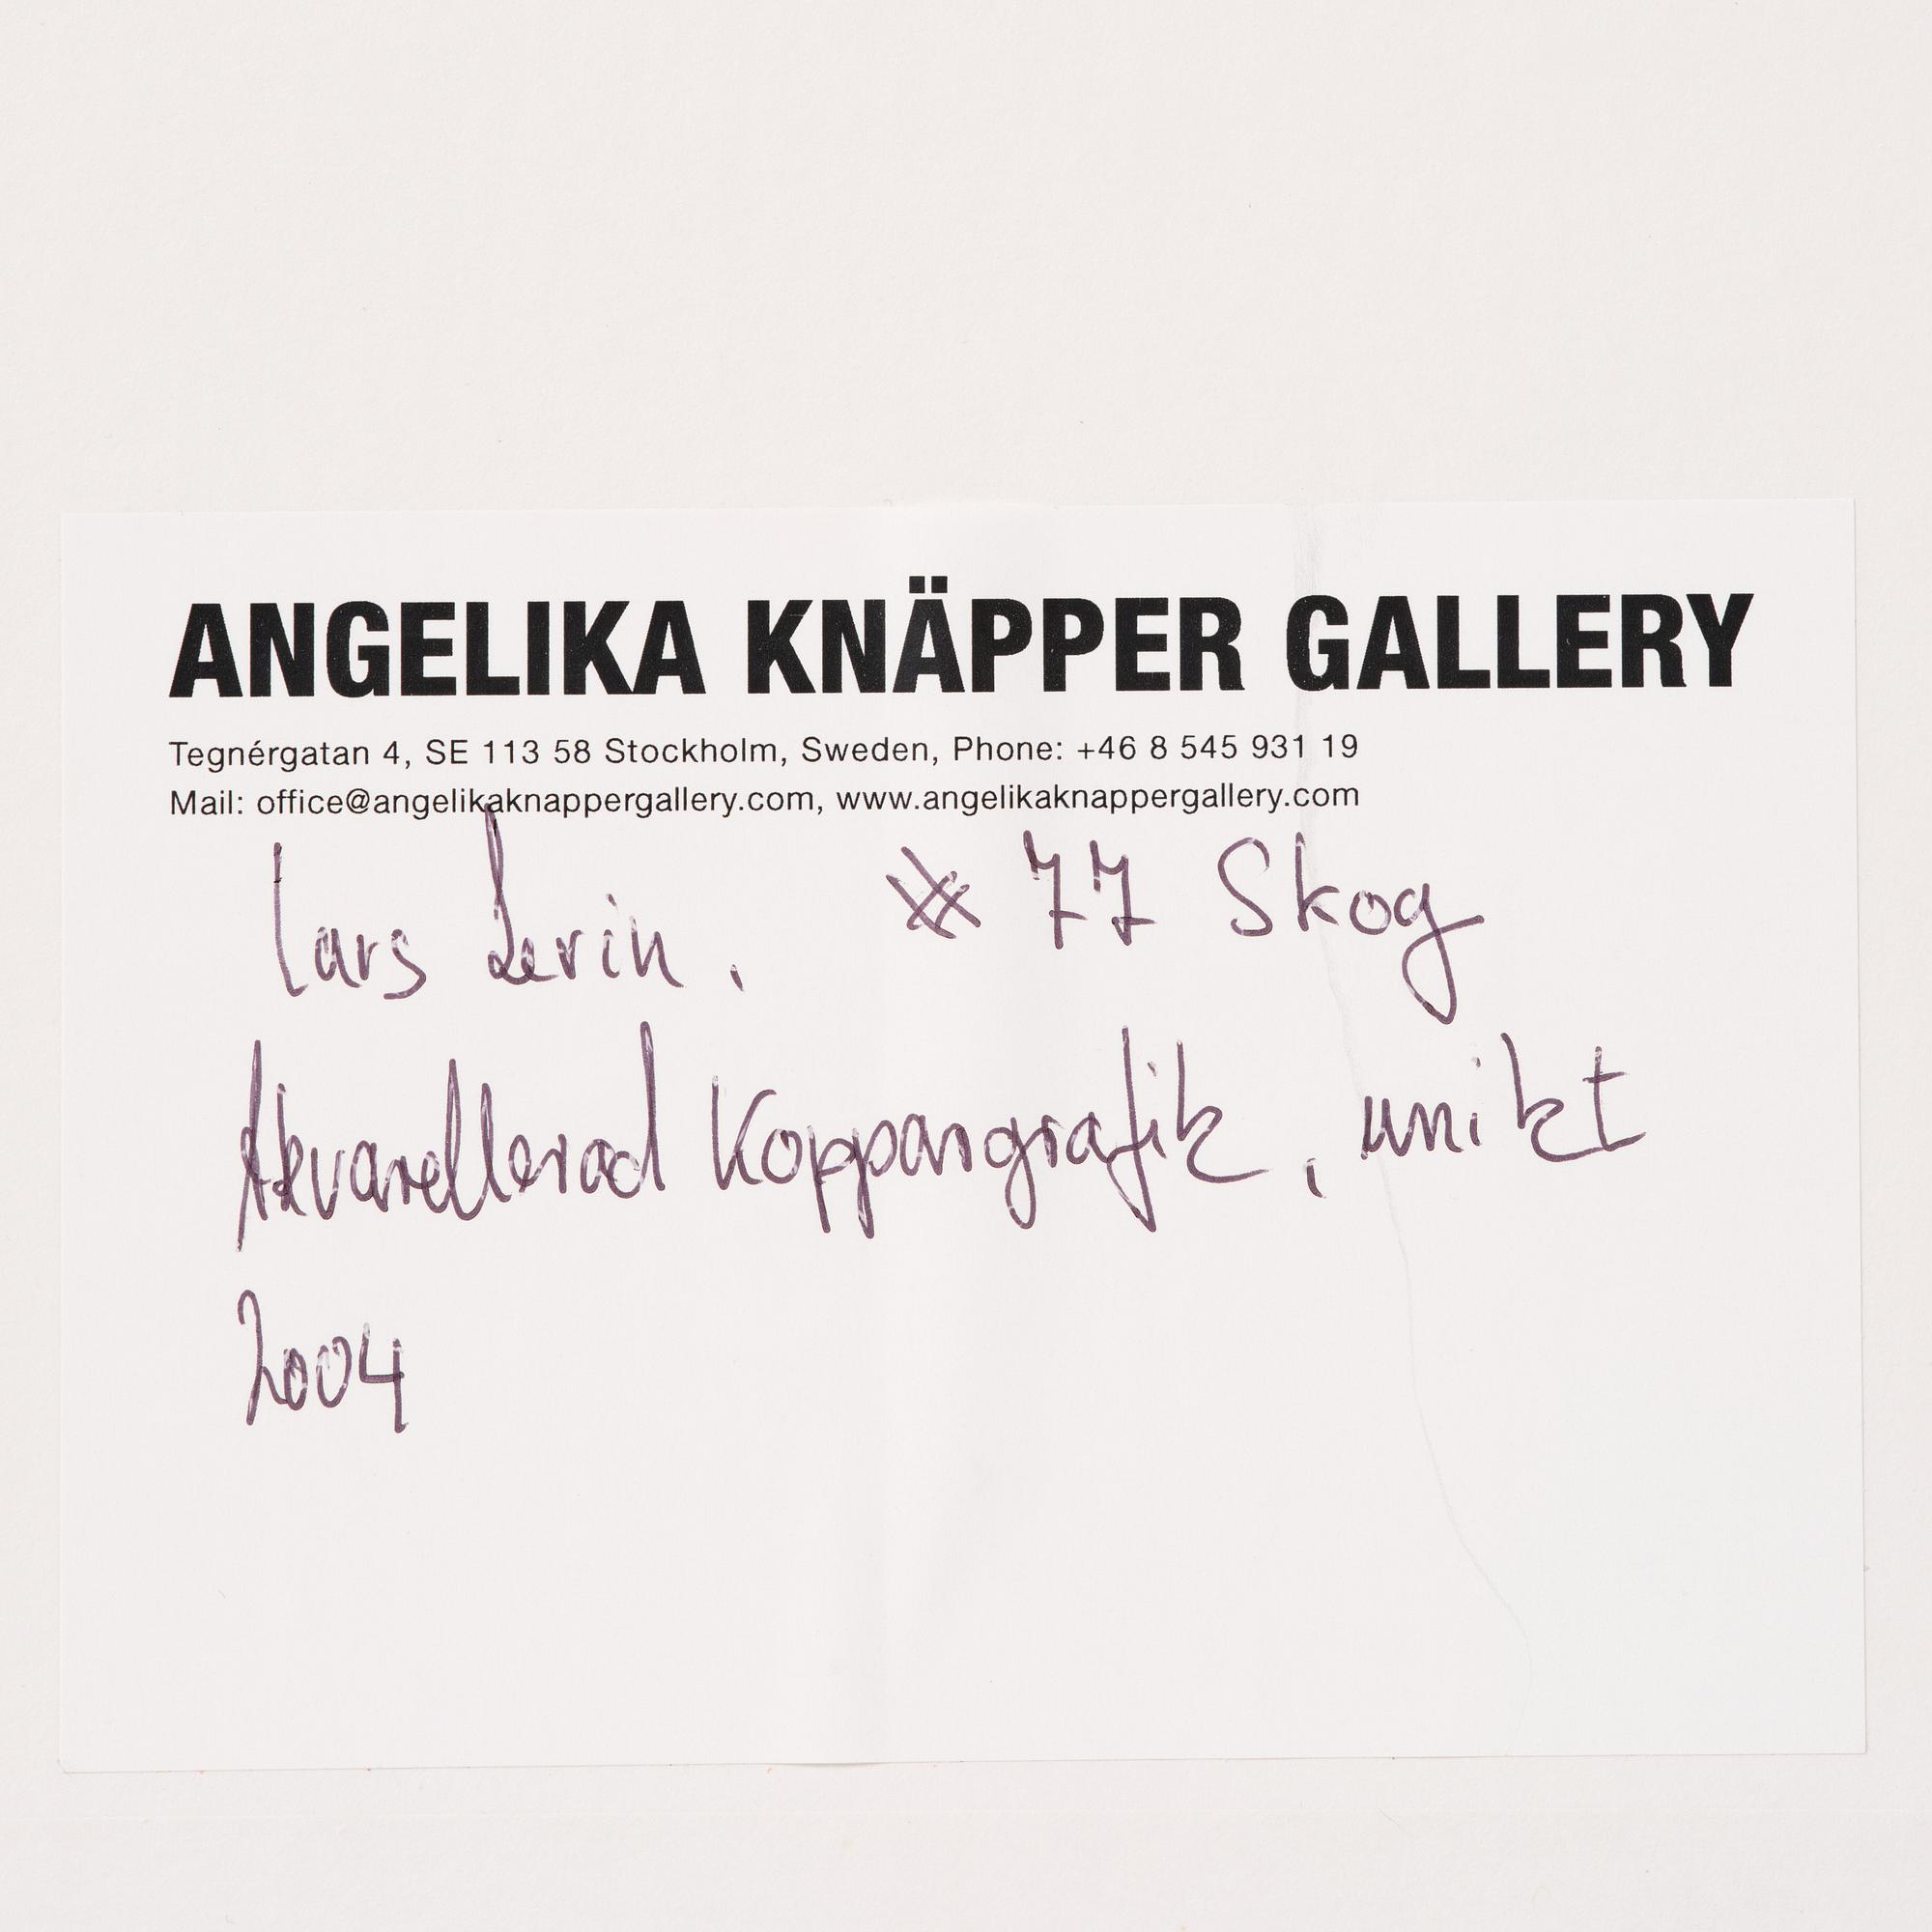 ANGELIKA KNÄPPER GALLERY
Tegnérgatan 4, SE 113 58 Stockholm, Sweden, Phone: +46 8 545 931 19
Mail: office@angelikaknappergallery.com, www.angelikaknappergallery.com
Lars Lerin, # 77 Skog
Akvarellerad Koppargrafik, unikt
2004